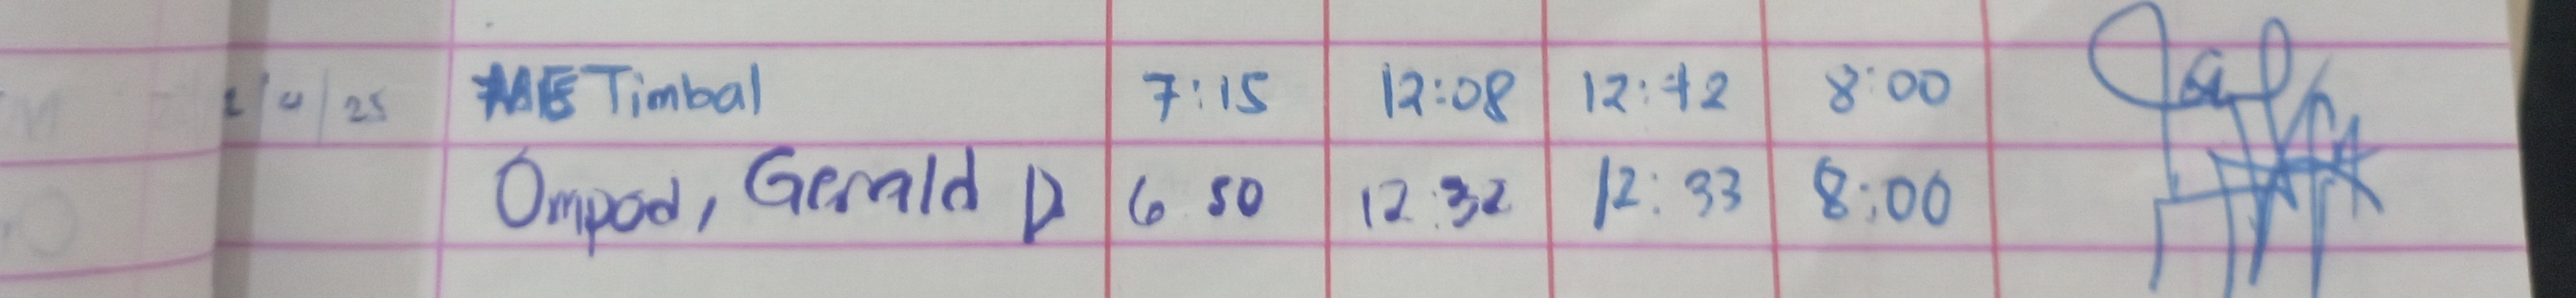 Timbal 7:15 12:08 12:42 8:00
Ompad, Gerald D 6 50 12:32 12:33 8:00